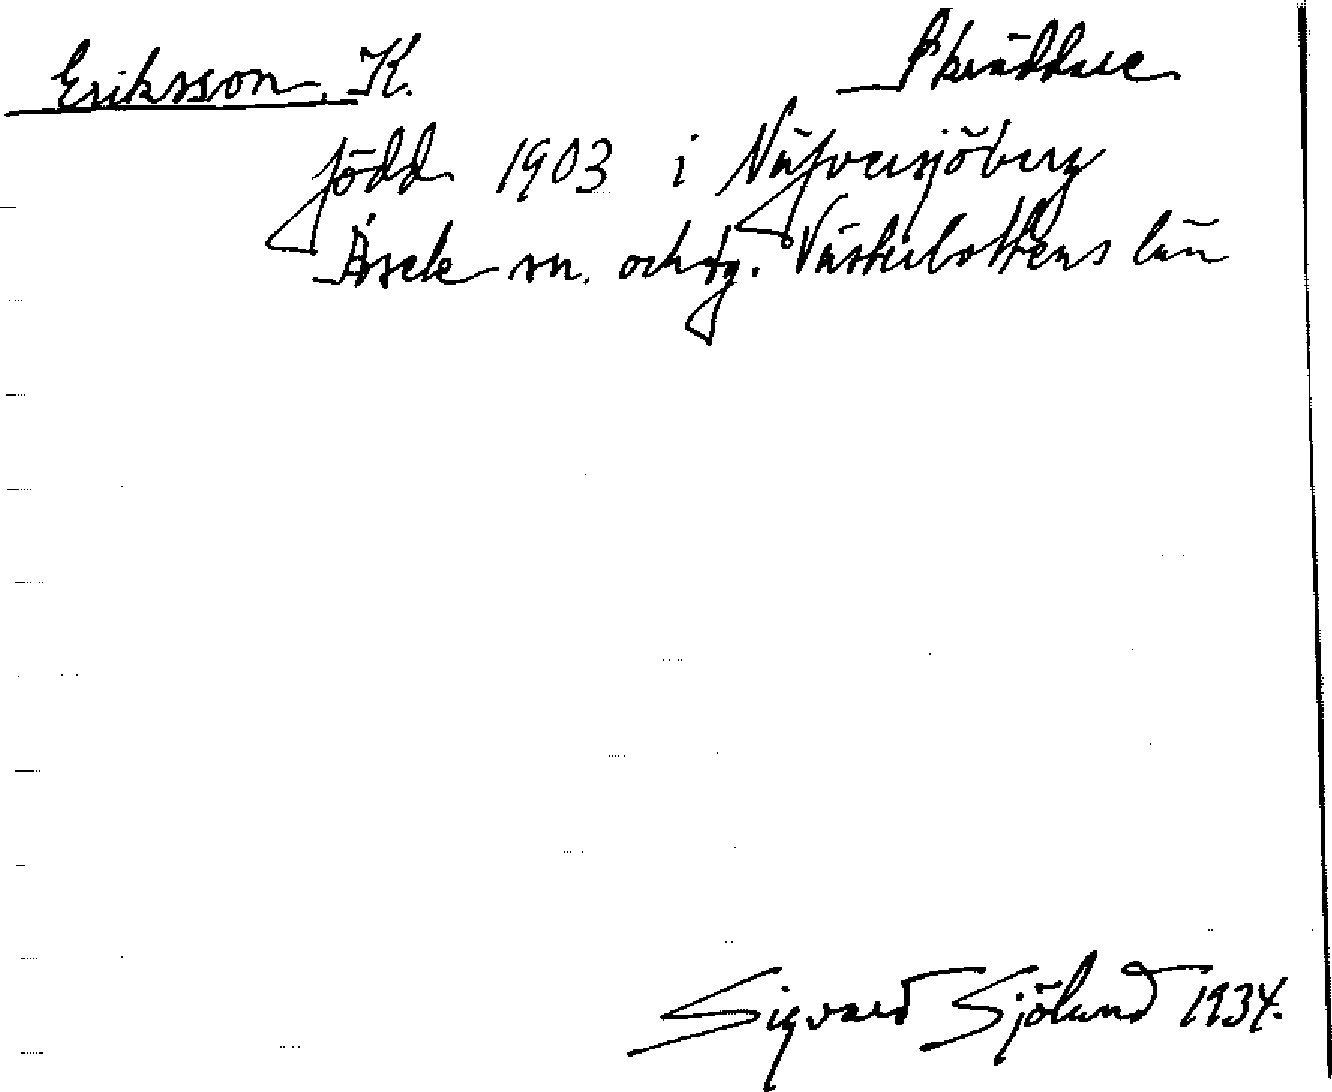 Eriksson, K. Skräddare
född 1903 i Näfversjöberg
Åsele sn. och tg. Västerbottens län
Sigvard Sjölund 1934.